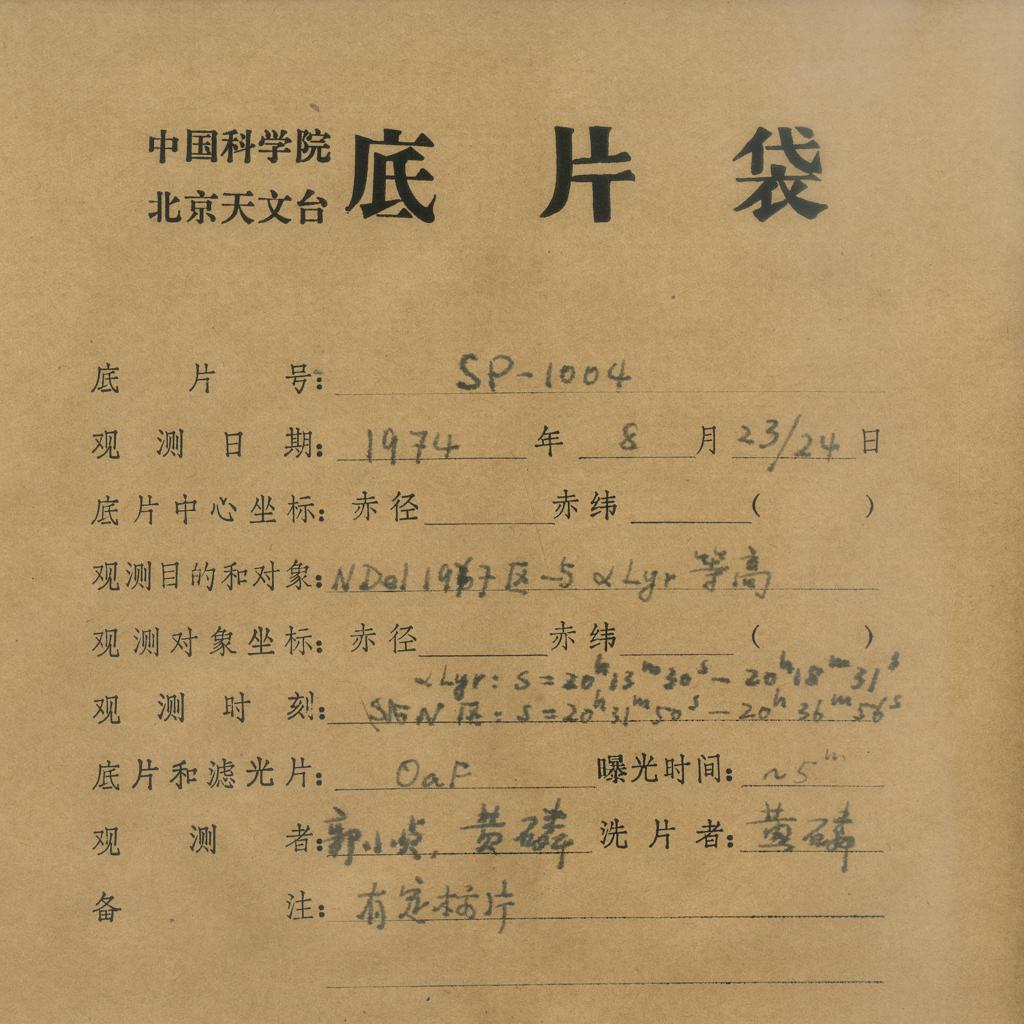 中国科学院
北京天文台
底片袋
底片号: SP-1004
观测日期: 1974年8月23/24日
底片中心坐标: 赤径 赤纬 ( )
观测目的和对象: NDel 1967区-5 αLyr 等高
观测对象坐标: 赤径 赤纬 ( )
αLyr: S=20h13m30s-20h18m31s
观测时刻: N区: S=20h31m50s-20h36m56s
底片和滤光片: OaF 曝光时间: ~5m
观测者: 郭小贞, 黄磷 洗片者: 黄磷
备注: 有定标片